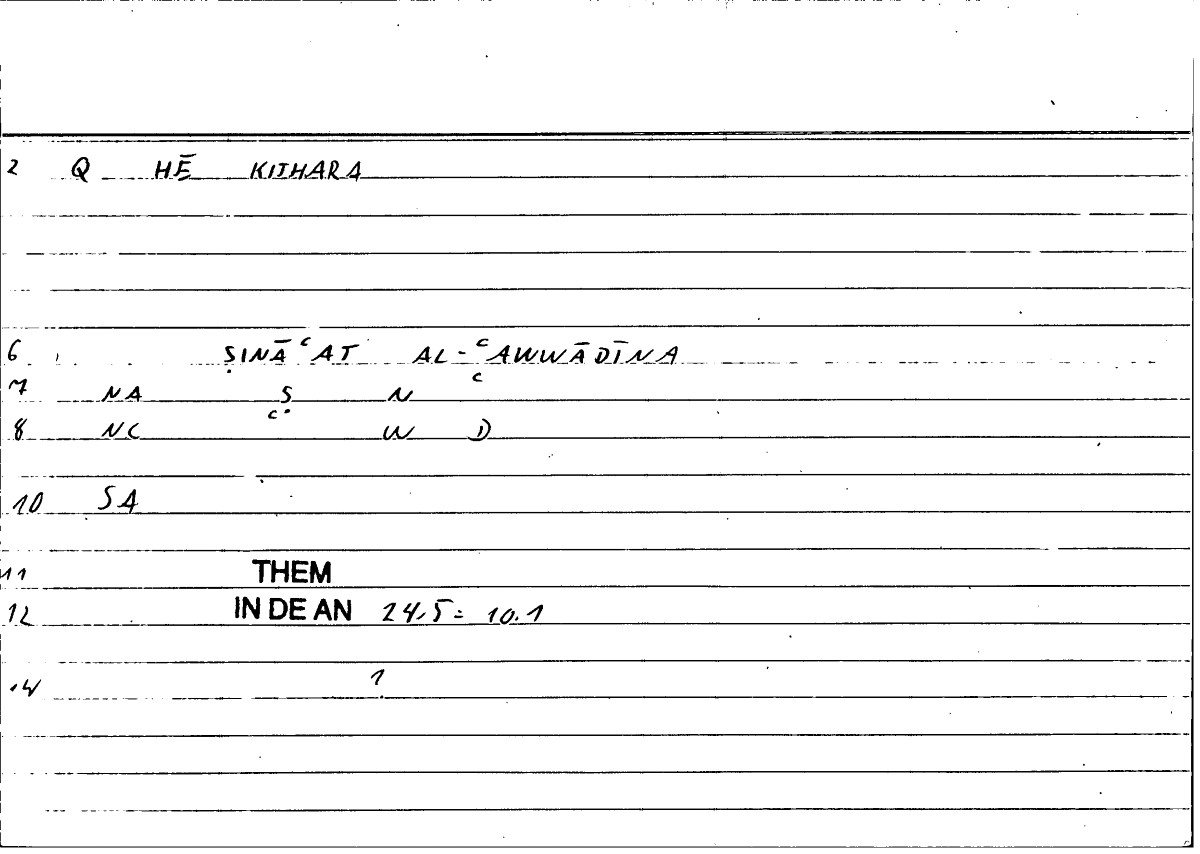 2 Q HĒ KITHARA
6 ṢINĀʿAT AL-ʿAWWĀDĪNA
7 NA Ṣ N ʿ
8 NC ʿ W D
10 SA
11 THEM
12 IN DE AN 24,5 = 10.1
14 1